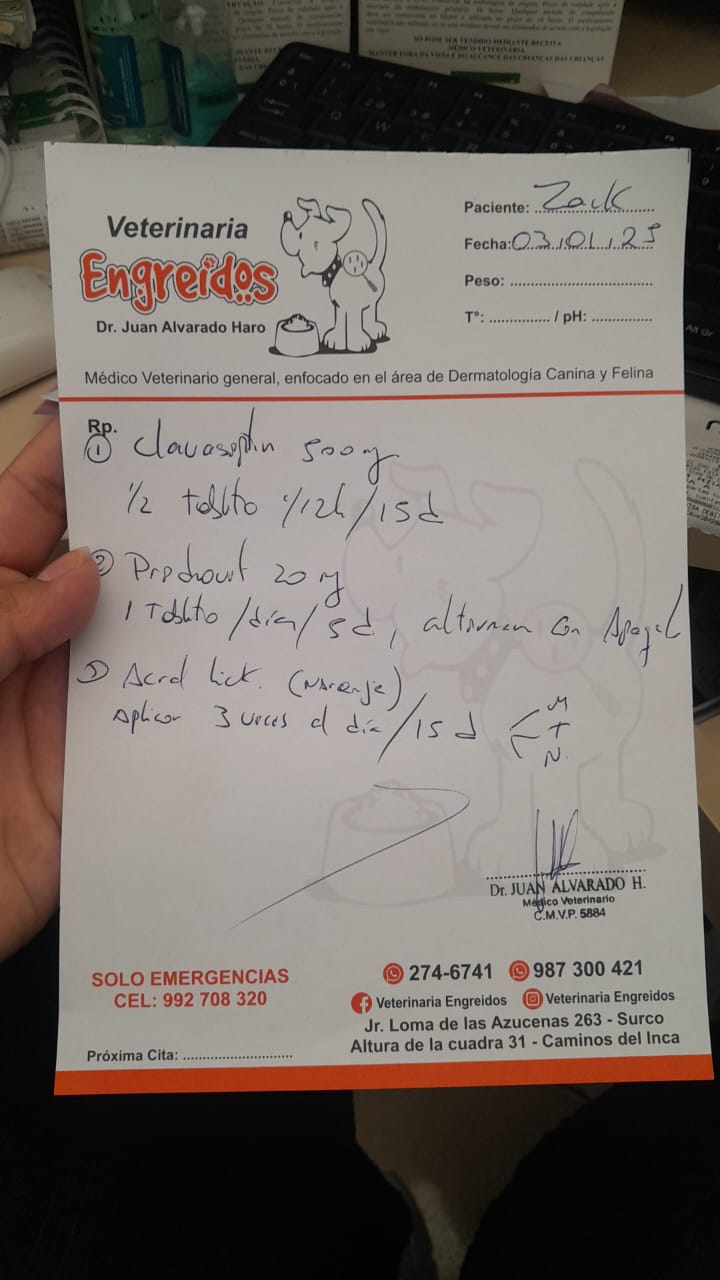 SÓ PODE SER VENDIDO MEDIANTE RECEITA
MÉDICO VETERINÁRIA.
MANTER FORA DA VISTA E DO ALCANCE DAS CRIANÇAS
Alt Gr
Veterinaria
Engreidos
Dr. Juan Alvarado Haro
Paciente: Zack
Fecha: 03.01.25
Peso:
T°: / pH:
Médico Veterinario general, enfocado en el área de Dermatología Canina y Felina
Rp.
① Clavaseptin 500 mg
1/2 Tableta c/12h/15d
② 20 mg
1 Tableta/día/5d, alternar con Apoquel
③ Acral Lick. (Naranja)
Aplicar 3 veces al día/15 d
M
T
N.
Dr. JUAN ALVARADO H.
Médico Veterinario
C.M.V.P. 5884
SOLO EMERGENCIAS
CEL: 992 708 320
274-6741 987 300 421
Veterinaria Engreidos Veterinaria Engreidos
Jr. Loma de las Azucenas 263 - Surco
Altura de la cuadra 31 - Caminos del Inca
Próxima Cita: